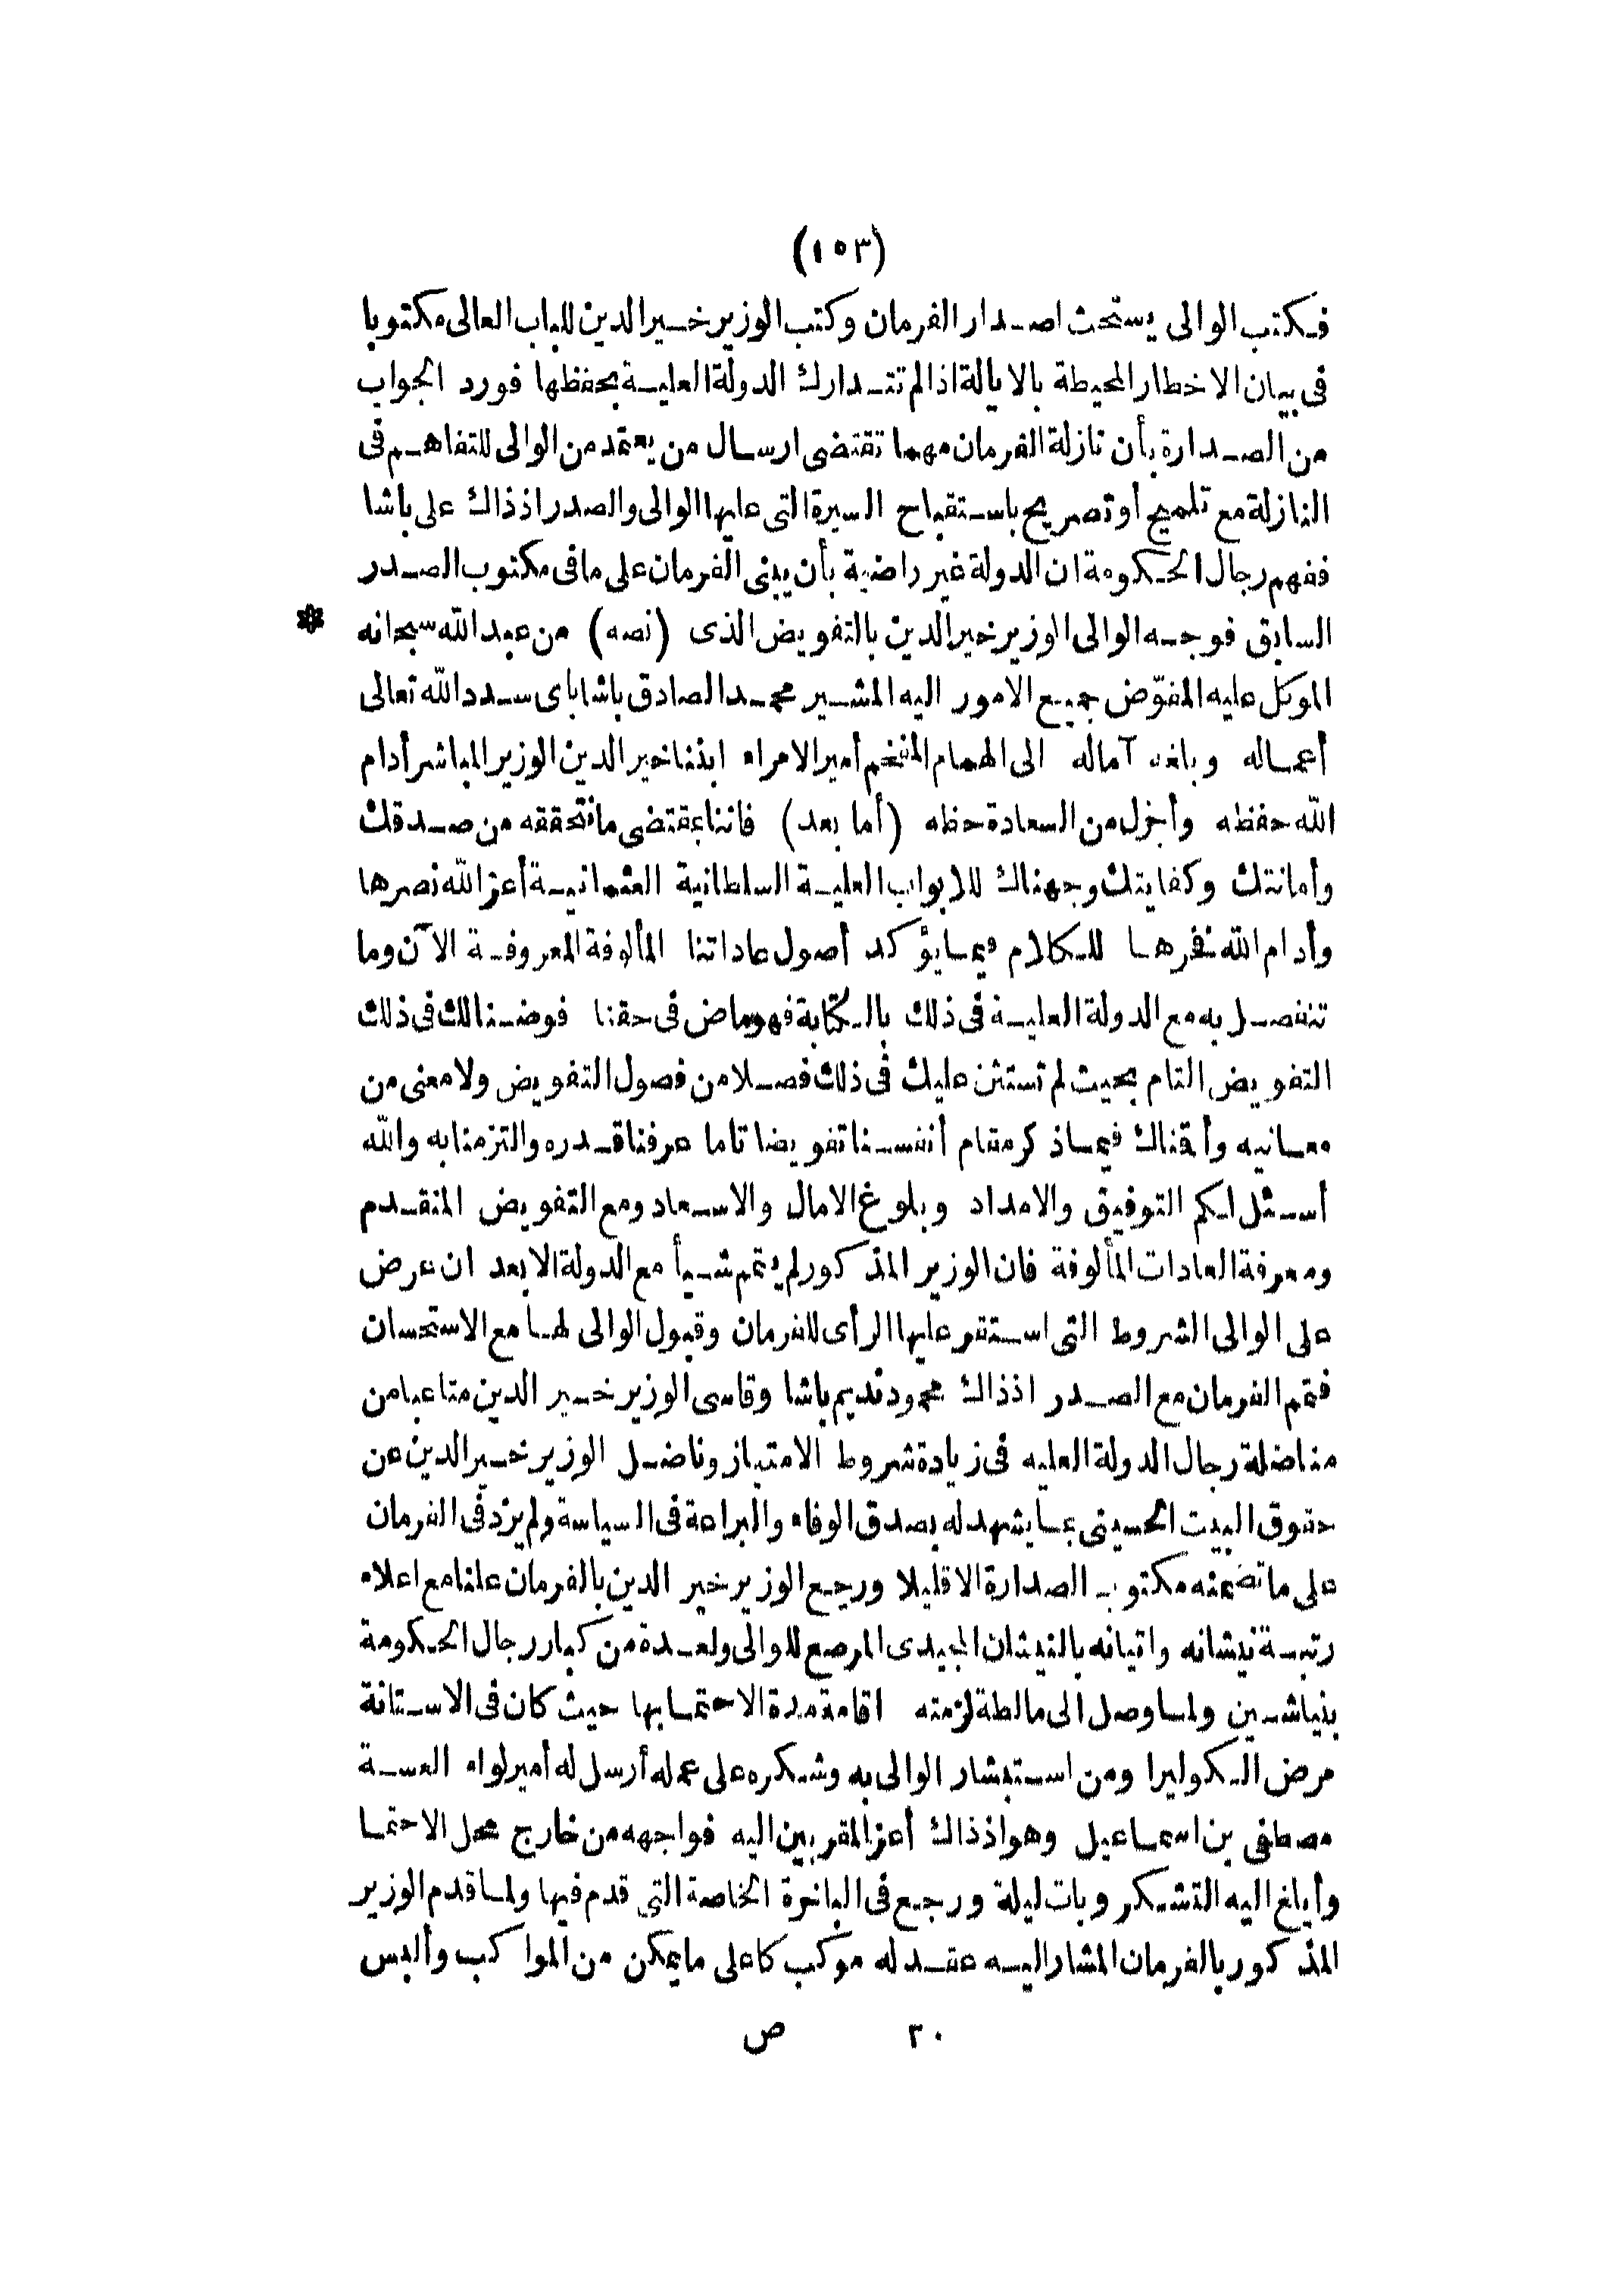 (١٥٣)
فكتب الوالى يستحث اصدار الفرمان وكتب الوزير خير الدين للباب العالى مكتوبا
فى بيان الاخطار المحيطة بالايالة اذا لم تتدارك الدولة العلية بحفظها فورد الجواب
من الصدارة بأن نازلة الفرمان مهما تقتضى ارسال من يعتمد من الوالى للتفاهم فى
النازلة مع تلميح أو تصريح باستقباح السيرة التى عليها الوالى والصدر اذ ذاك على باشا
ففهم رجال الحكومة ان الدولة غير راضية بأن يبنى الفرمان على ما فى مكتوب الصدر
السابق فوجه الوالى الوزير خير الدين بالتفويض الذى (نصه) من عبد الله سبحانه *
الموكل عليه المفوّض جميع الامور اليه المشير محمد الصادق باشا باى سدد الله تعالى
أعماله وبلغه آماله الى الهمام المفخم أمير الامراء ابننا خير الدين الوزير المباشر أدام
الله حفظه وأجزل من السعادة حظه (أما بعد) فاننا بمقتضى ما نتحققه من صدقك
وأمانتك وكفايتك وجهناك للابواب العلية السلطانية العثمانية أعز الله نصرها
وأدام الله نفرها للكلام فيما يؤكد أصول عاداتنا المألوفة المعروفة الآن وما
تنفصل به مع الدولة العلية فى ذلك بالكتابة فهو ماض فى حقنا فوضنا لك فى ذلك
التفويض التام بحيث لم تستثن عليك فى ذلك فصلا من فصول التفويض ولا معنى من
معانيه وأقناك فيما ذكر مقام أنفسنا تفويضا تاما عرفنا قدره والتزمنا به والله
أسئل لكم التوفيق والامداد وبلوغ الامال والاسعاد ومع التفويض المتقدم
ومعرفة العادات المألوفة فان الوزير المذكور لم يتم شيأ مع الدولة الا بعد ان عرض
على الوالى الشروط التى استقر عليها الرأى للفرمان وقبول الوالى لها مع الاستحسان
فتم الفرمان مع الصدر اذ ذاك محمود نديم باشا وقاسى الوزير خير الدين متاعبا من
مناضلة رجال الدولة العليه فى زيادة شروط الامتياز وناضل الوزير خير الدين عن
حقوق البيت الحسينى بما يشهد له بصدق الوفاء والبراعة فى السياسة ولم يزد فى الفرمان
على ما تضمنه مكتوب الصدارة الا قليلا ورجع الوزير خير الدين بالفرمان علنا مع اعلاء
رتبة نيشانه واتيانه بالنيشان المجيدى المرصع للوالى ولعدة من كبار رجال الحكومة
بنياشين ولما وصل الى مالطة لزمته اقامة مدة الاحتما بها حيث كان فى الاستانة
مرض الكوليرا ومن استبشار الوالى به وشكره على عمله أرسل له أمير لواء العسة
مصطفى بن اسماعيل وهو اذ ذاك أعز المقربين اليه فواجهه من خارج محل الاحتما
وأبلغ اليه التشكر وبات ليلة ورجع فى الباخرة الخاصة التى قدم فيها ولما قدم الوزير
المذكور بالفرمان المشار اليه عقد له موكب كاعلى ما يمكن من المواكب وألبس
٢٠ ص